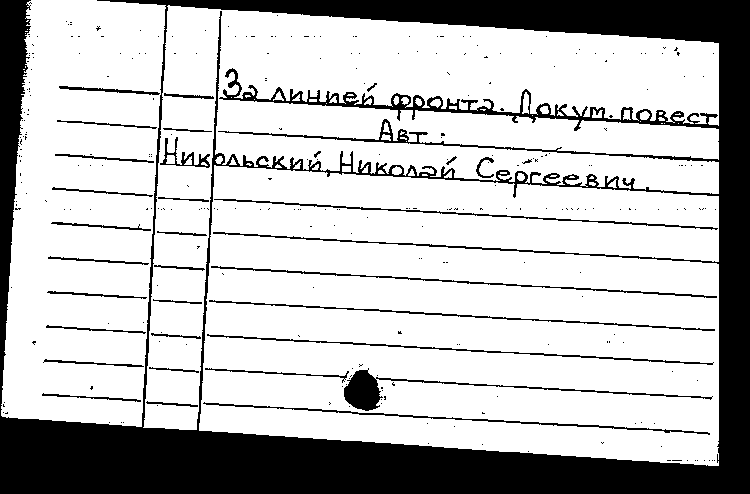 За линией фронта. Докум. повест
Авт.:
Никольский, Николай Сергеевич.